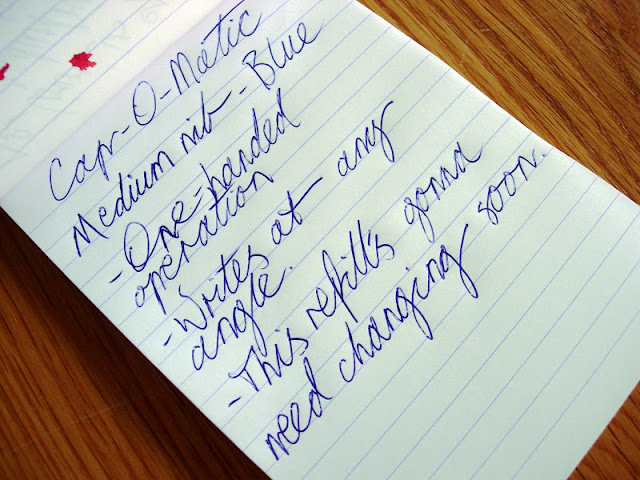 Cap-O-Matic
Medium nib - Blue
- One-handed
operation
- Writes at any
angle.
- This refill's gonna
need changing soon.